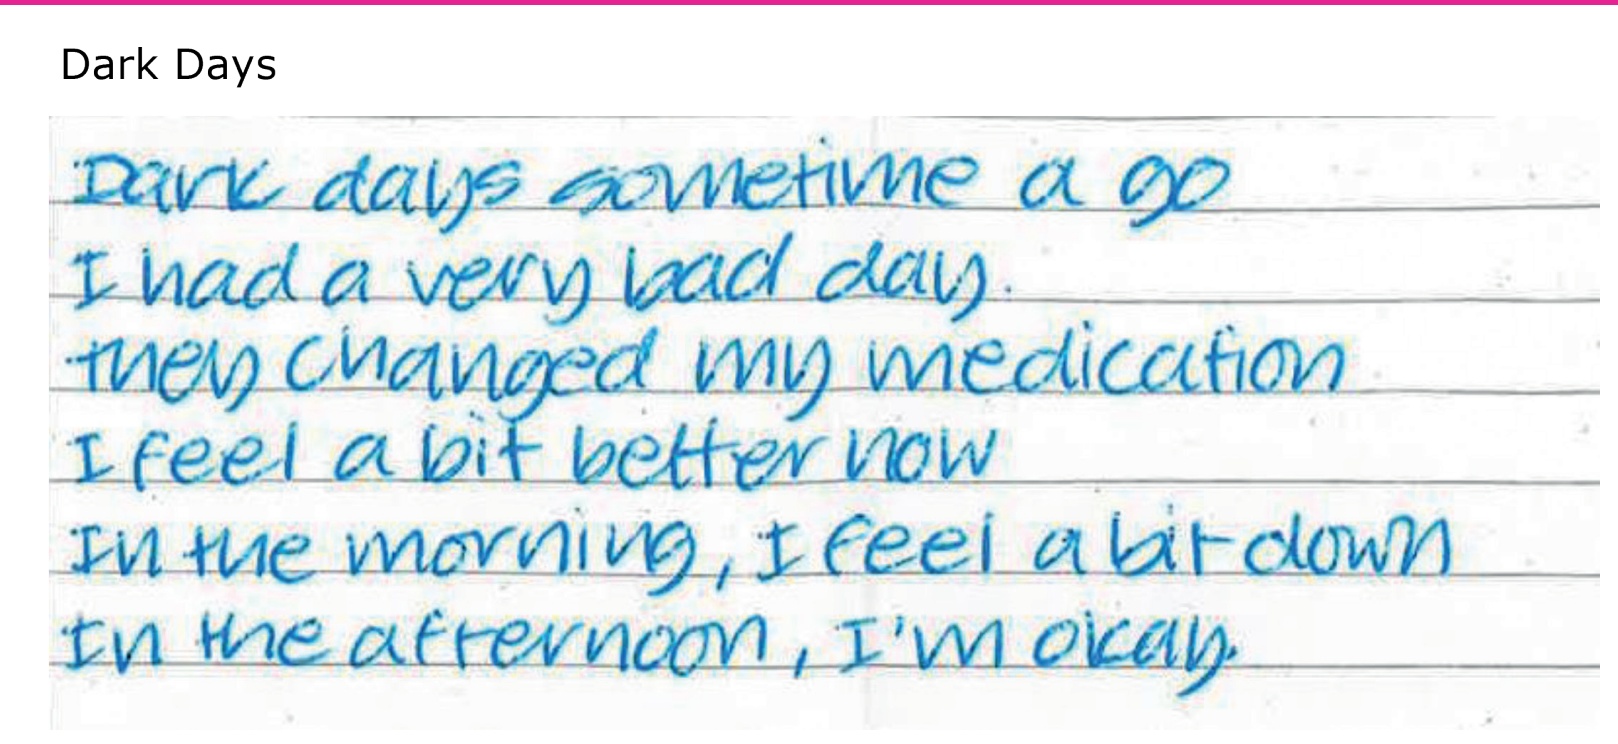 Dark Days
Dark days sometime a go
I had a very bad day.
they changed my medication
I feel a bit better now
In the morning, I feel a bit down
In the afternoon, I'm okay.